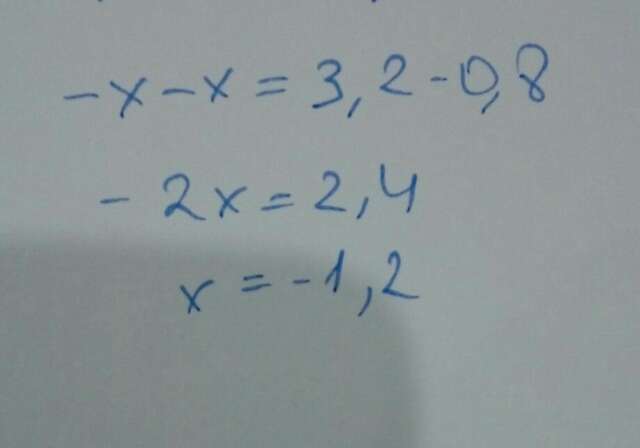 -x-x=3,2-0,8
-2x=2,4
x=-1,2